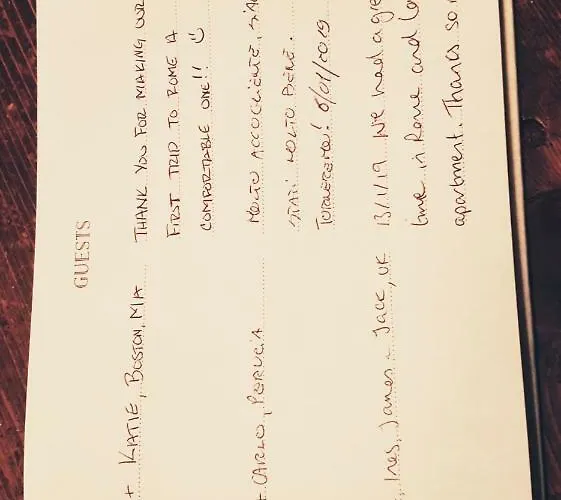 GUESTS
+ KATIE, BOSTON, MA THANK YOU FOR MAKING OUR
FIRST TRIP TO ROME A
COMFORTABLE ONE!!
+ CARLO, PERUGIA MOLTO ACCOGLIENTE, SIA
STATI MOLTO BENE.
TORNEREMO! 6/01/2019
, Ines, James + Jack, UK 13/1/19 We had a gre
time in Rome and lo
apartment. Thanks so